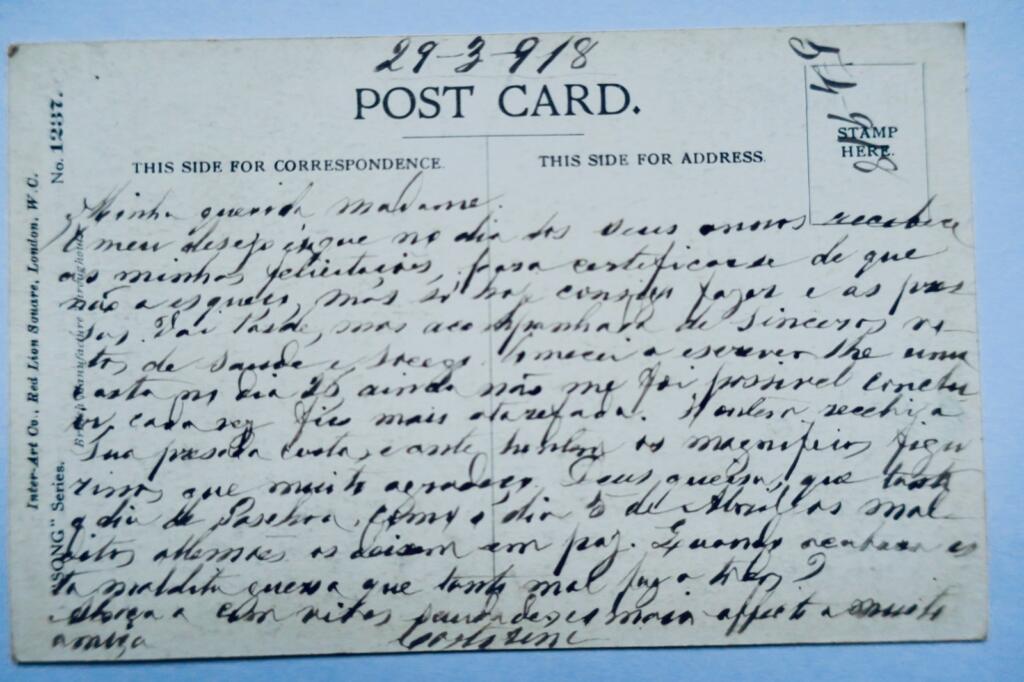 29-3-918
POST CARD.
5-4-918
STAMP
HERE.
THIS SIDE FOR CORRESPONDENCE.
THIS SIDE FOR ADDRESS.
Inter-Art Co., Red Lion Square, London, W.C.
SONG" Series.
No. 1237.
Minha querida madame.
O meu desejo é que no dia dos seus annos
as minhas felicitaçoes, para certificarse de que
não a esqueci, mas só hoje consigo fazer e as pres
sas. Vai tarde, mas acompanhada de sinceros vo-
tos de saude e socego. Comecei a escrever lhe uma
carta no dia ainda não me foi possivel conclu
ir, cada vez fico mais atarefada. Hontem recebi a
sua presada carta, e ante hontem os magnificos figu
rinos, que muito agradeço. Deus queira, que tanto
o dia de Paschoa, como o dia 5 de Abril os mal-
ditos allemães os deixem em paz. Quando acabara es
ta maldita guerra que tanto mal faz a todos?
Abraça a com saudades e maior affecto a muito
amiga